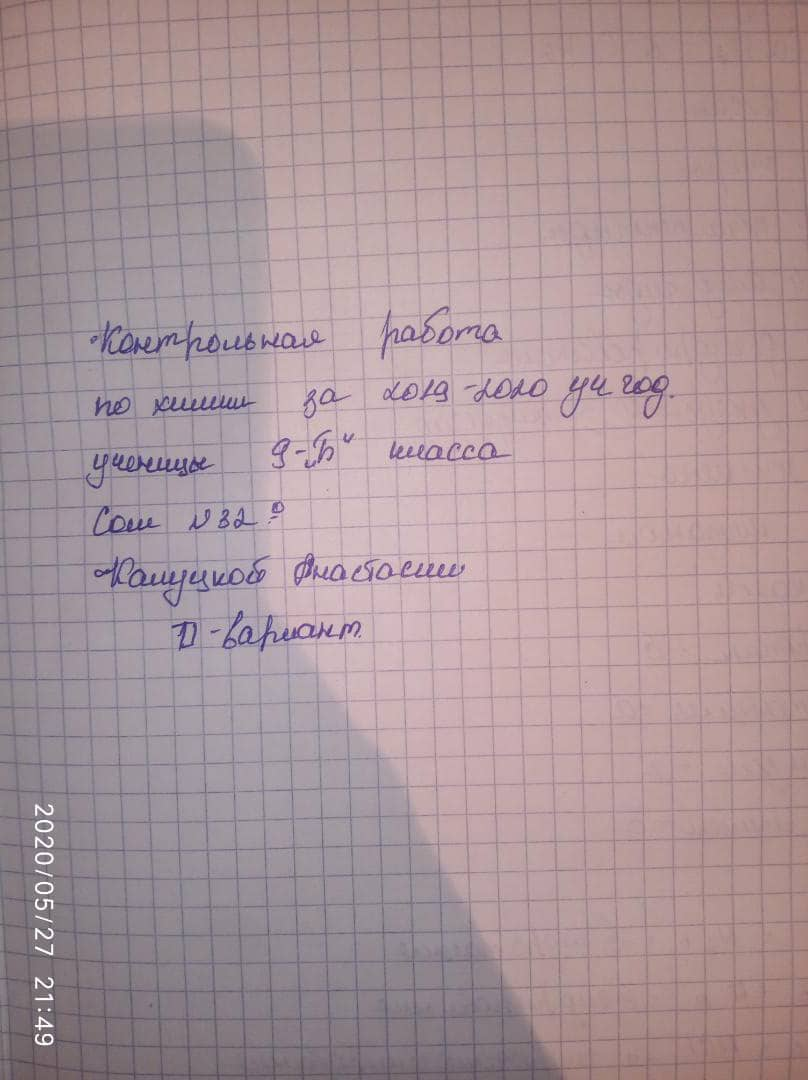 Контрольная работа
по химии за 2019-2020 уч год.
ученицы 9-„Б" класса
Сош №32
Калуцкой Анастасии
II-вариант.
2020/05/27 21:49